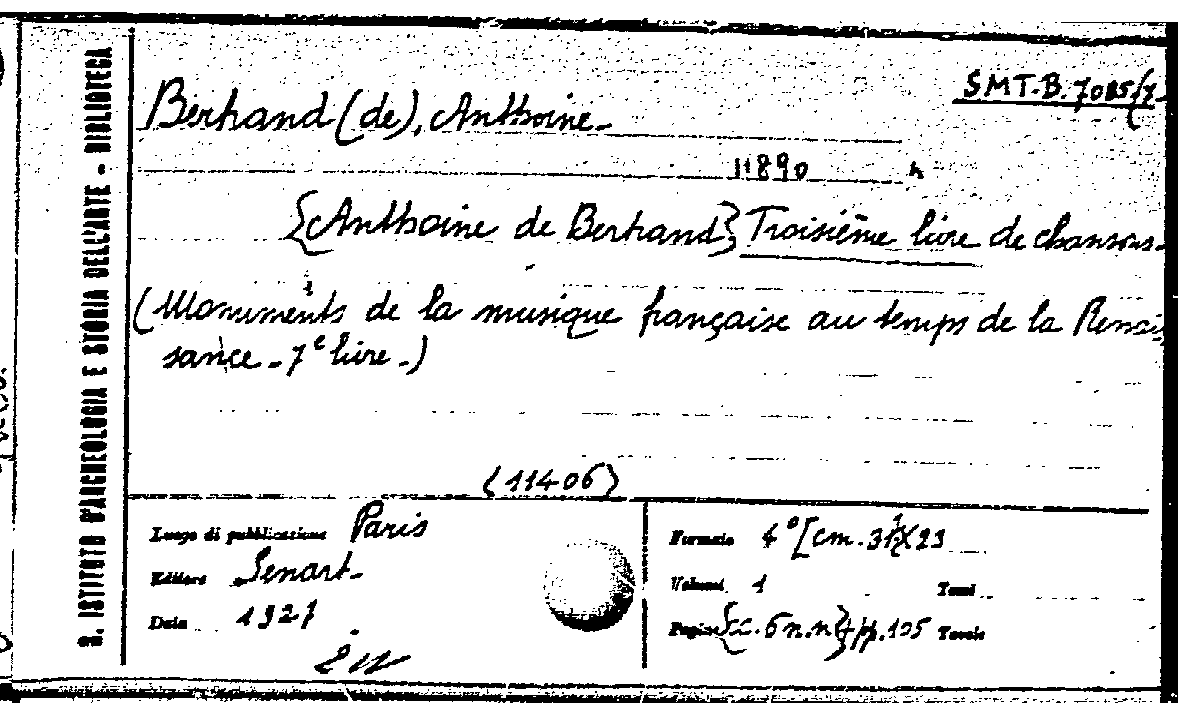 R. ISTITUTO D'ARCHEOLOGIA E STORIA DELL'ARTE - BIBLIOTECA
SMT.B. 7085/7
Bertrand (de), Anthoine -
11890
{Anthoine de Bertrand} Troisième livre de chansons -
(Monuments de la musique française au temps de la Renais
sance - 7e livre -)
(11406)
Luogo di pubblicazione Paris
Editore Senart -
Data 1927
Formato 4° [cm. 31X23
Volumi 1 Tomi
Pagine {c. 6 n.n} + pp. 105 Tavole